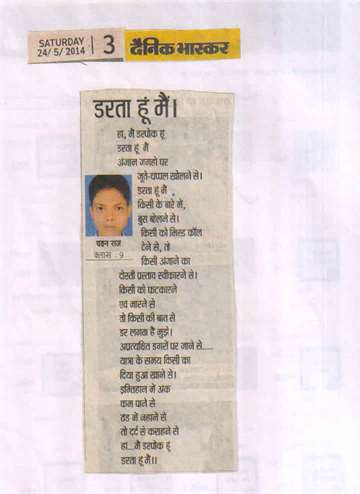 SATURDAY
24/5/2014
3
दैनिक भास्कर
डरता हूं मैं।
हां, मैं डरपोक हूं
डरता हूं मैं
अंजान जगहों पर
जूते-चप्पल खोलने से।
डरता हूं मैं,
किसी के बारे में,
बुरा बोलने से।
किसी को मिस्ड कॉल
देने से, तो
किसी अंजाने का
दोस्ती प्रस्ताव स्वीकारने से।
किसी को फटकारने
एवं मारने से
तो किसी की बात से
डर लगता है मुझे।
अप्रत्यक्षित डगरों पर जाने से.....
यात्रा के समय किसी का
दिया हुआ खाने से।
इम्तिहान में अंक
कम पाने से
ठंड में नहाने से
तो दर्द से कराहने से
हां...मैं डरपोक हूं
डरता हूं मैं।।
पवन राज
क्लास : 9